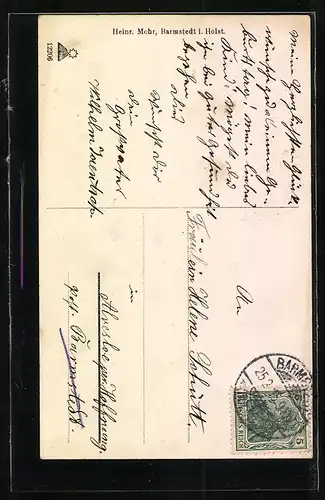 Heinr. Mohr, Barmstedt i. Holst.
12206
Meine herzlichsten Glück
wünsche zu deinem Ge-
burtstag! Mein liebes
Kind! Mögest du
in bester Gesundheit
alles
Wünscht dir
dein
Großvater
Wilhelm
An
Fräulein Helene Schütt.
in
Hoffnung.
post. Barmstedt.
BARMST
25.2
5